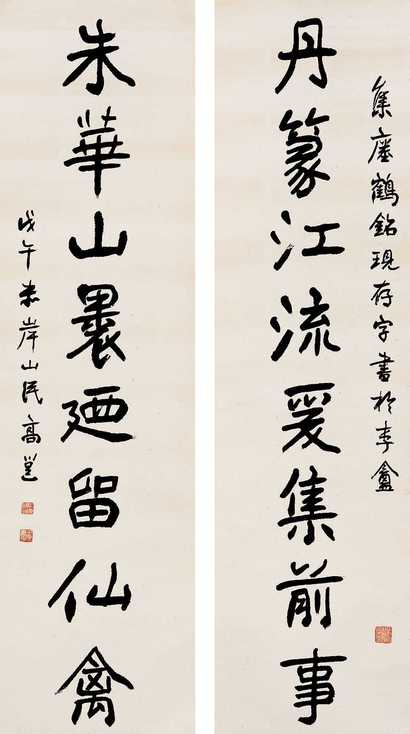 集瘞鶴銘現存字書於李盦
丹篆江流爰集前事
朱華山裹廼留仙禽
戊午赤岸山民高邕